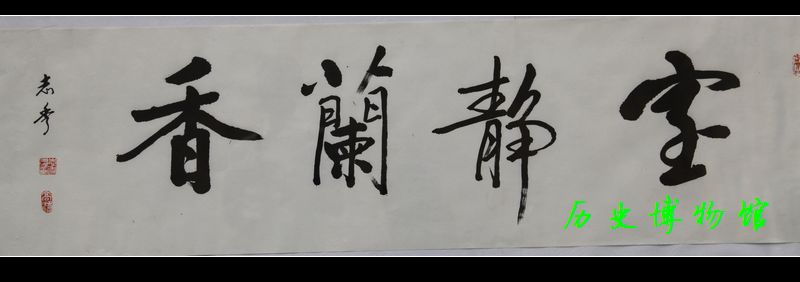 室静蘭香
志秀
历史博物馆